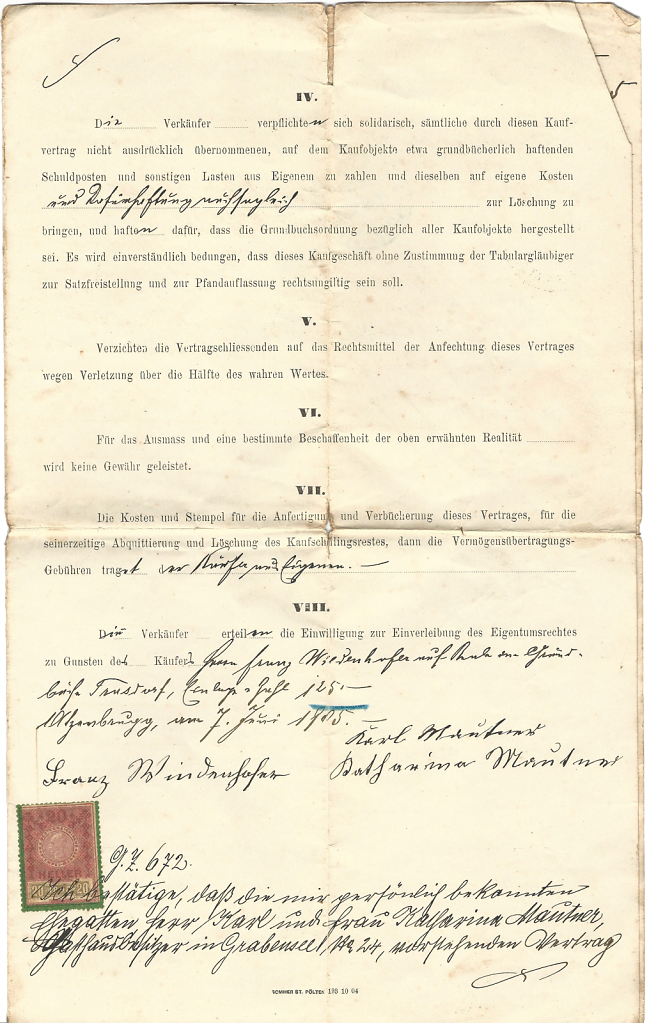 IV.
Die Verkäufer verpflichten sich solidarisch, sämtliche durch diesen Kauf-
vertrag nicht ausdrücklich übernommenen, auf dem Kaufobjekte etwa grundbücherlich haftenden
Schuldposten und sonstigen Lasten aus Eigenem zu zahlen und dieselben auf eigene Kosten
und zur Löschung zu
bringen, und haften dafür, dass die Grundbuchsordnung bezüglich aller Kaufobjekte hergestellt
sei. Es wird einverständlich bedungen, dass dieses Kaufgeschäft ohne Zustimmung der Tabulargläubiger
zur Satzfreistellung und zur Pfandauflassung rechtsungiltig sein soll.
V.
Verzichten die Vertragschliessenden auf das Rechtsmittel der Anfechtung dieses Vertrages
wegen Verletzung über die Hälfte des wahren Wertes.
VI.
Für das Ausmass und eine bestimmte Beschaffenheit der oben erwähnten Realität
wird keine Gewähr geleistet.
VII.
Die Kosten und Stempel für die Anfertigung und Verbücherung dieses Vertrages, für die
seinerzeitige Abquittierung und Löschung des Kaufschillingsrestes, dann die Vermögensübertragungs-
Gebühren traget der Käufer aus Eigenem. —
VIII.
Die Verkäufer erteilen die Einwilligung zur Einverleibung des Eigentumsrechtes
zu Gunsten des Käufers Herrn Franz Windenhofer auf Realität im Grund-
buche Einlage-Zahl 125.—
Atzenbrugg, am 7. Juni 1905.—
Karl Mautner
Franz Windenhofer Katharina Mautner
20
HELLER
20 20
G.Z. 672.
Ich bestätige, daß die mir persönlich bekannten
Ehegatten Herr Karl und Frau Katharine Mautner,
Gasthausbesitzer in Grabensee No 24, vorstehenden Vertrag
SOMMER ST. PÖLTEN 193 10 04